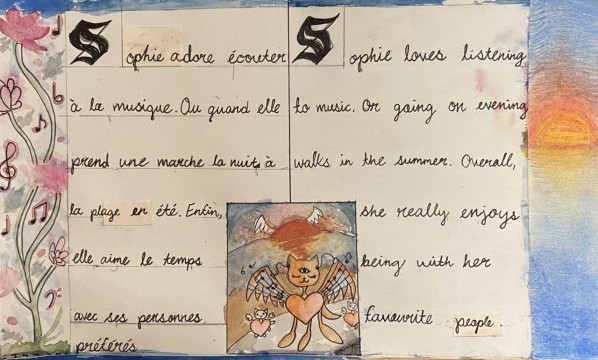 Sophie adore écouter
à la musique. Ou quand elle
prend une marche la nuit, à
la plage en été. Enfin,
elle aime le temps
avec ses personnes
préférés
Sophie loves listening
to music. Or going on evening
walks in the summer. Overall,
she really enjoys
being with her
favourite people.